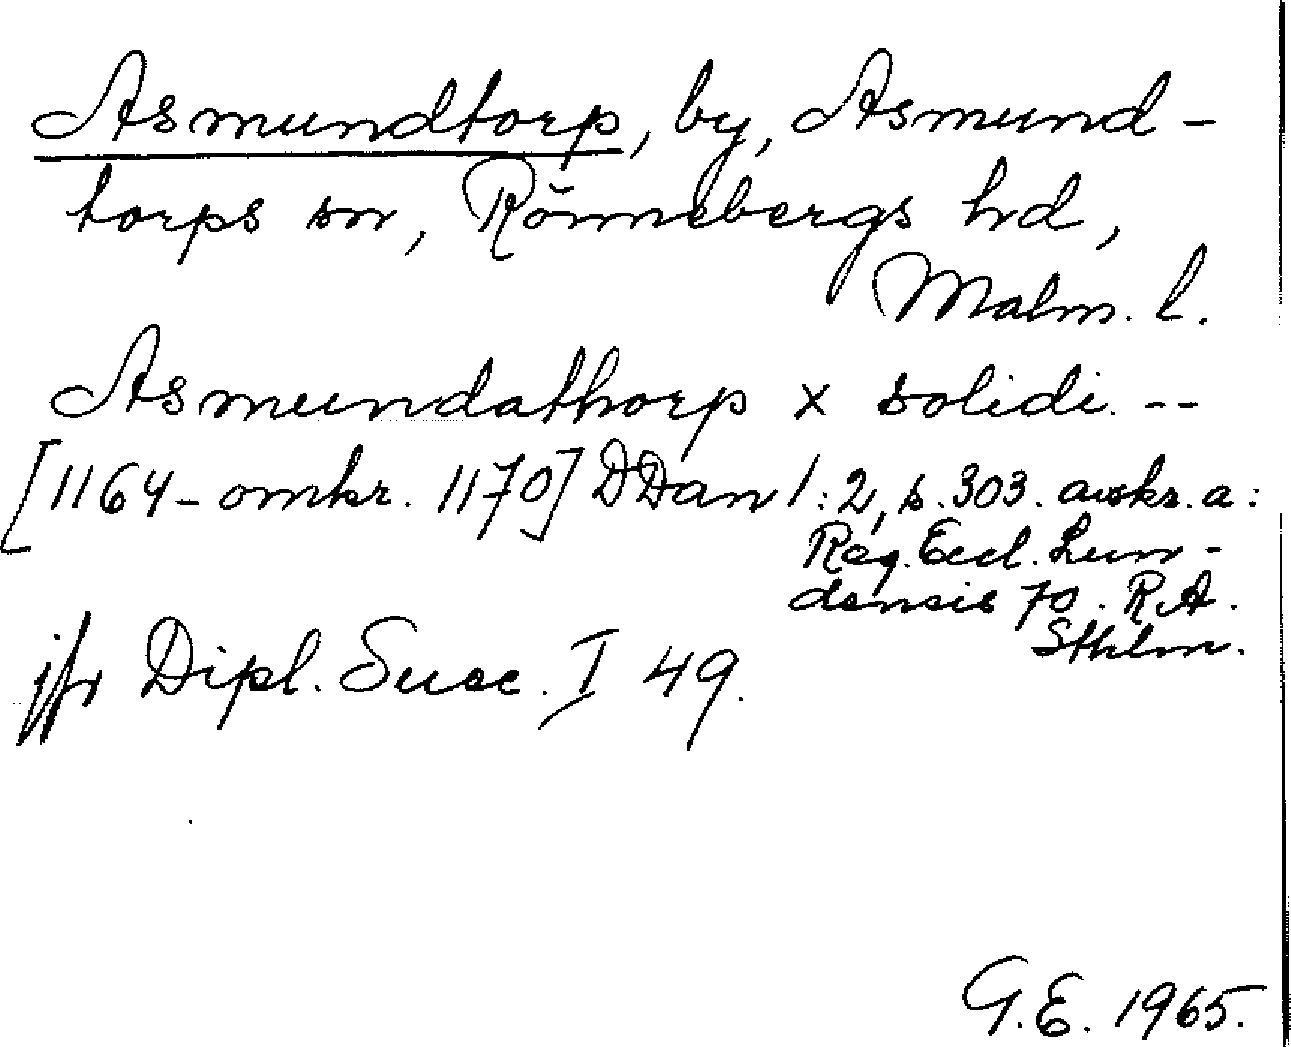 Asmundtorp, by, Asmund-
torps sn, Rönnebergs hd,
Malm. l.
Asmundathorp x solidi. --
[1164-omkr. 1170] DDan 1:2, s. 303. avskr. a:
Reg. Eccl. Lun-
densis 70. R.A.
Sthlm.
jfr Dipl. Suec. I 49.
G.E. 1965.